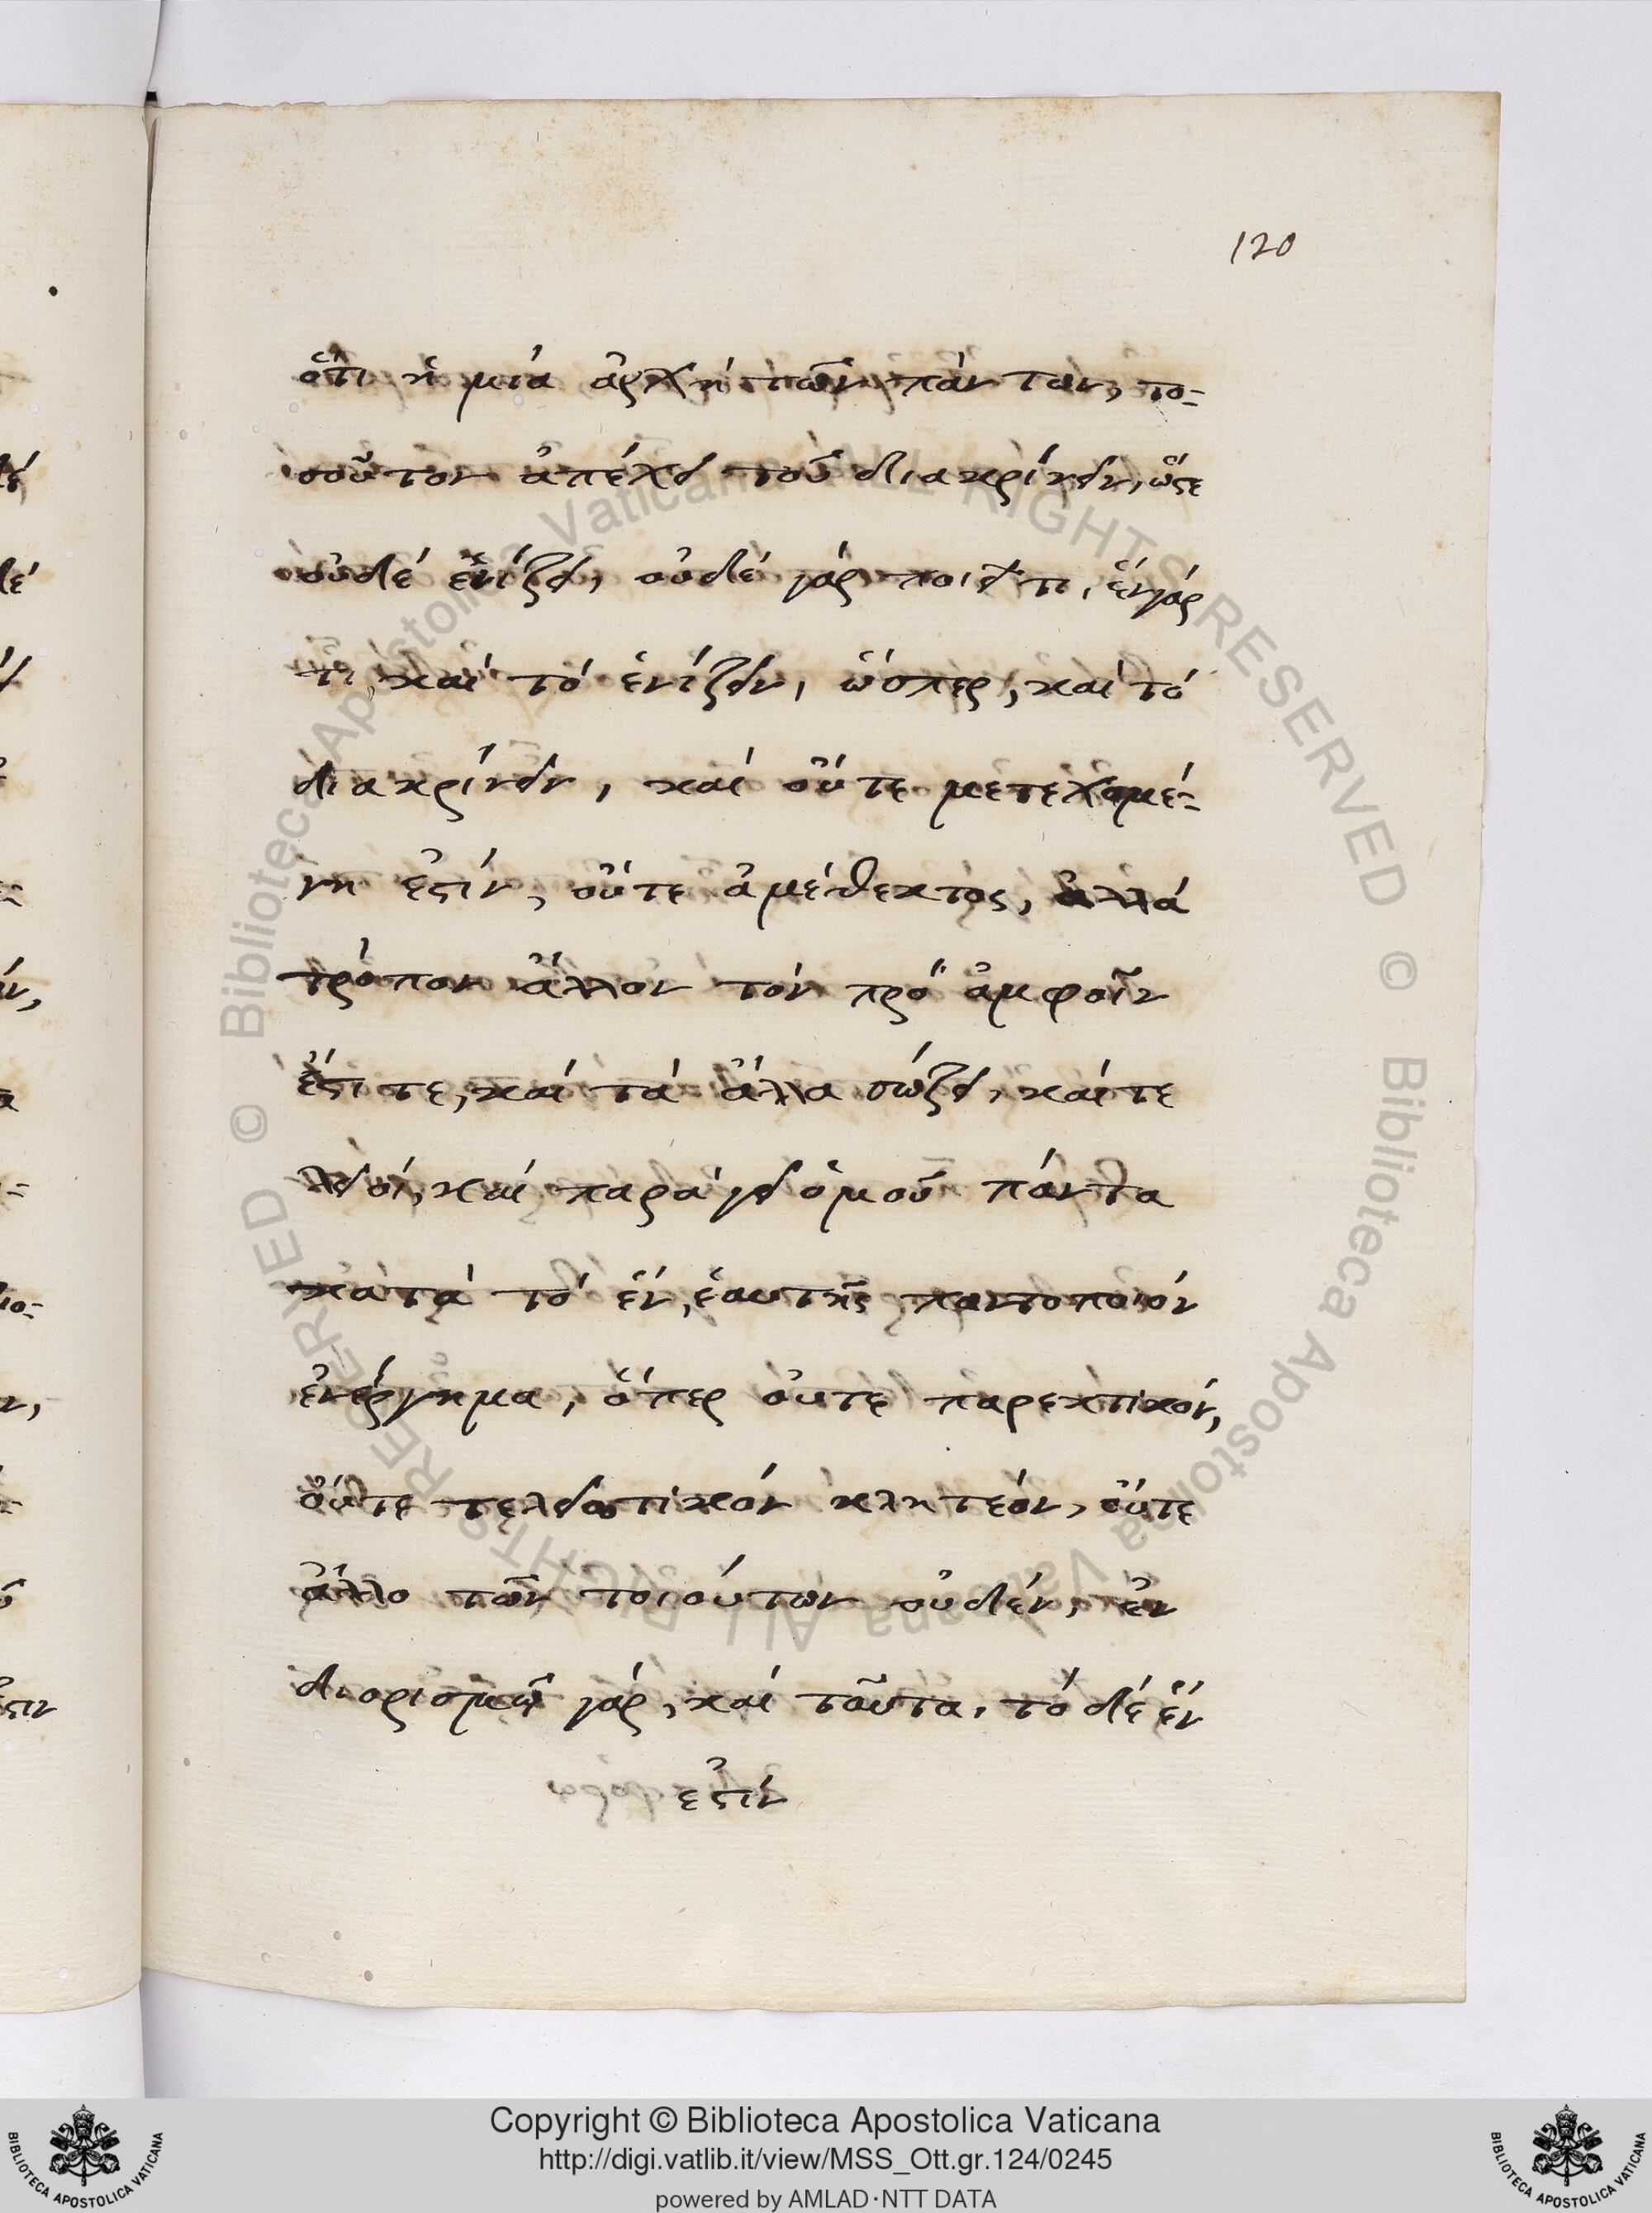 120
ὅτι ἡ μία ἀρχή τῶν πάντων, το-
σοῦτον ἀπέχει τοῦ διακρίνειν, ὥστε
οὐδέ ἑνίζει, οὐδέ γάρ ποιεῖ τι, ἕν γάρ
τι, καί τό ἑνίζειν, ὥσπερ, καί τό
διακρίνειν, καί οὔτε μετεχομέ-
νη ἐστίν, οὔτε ἀμέθεκτος, ἀλλά
τρόπον ἄλλον τόν πρό ἀμφοῖν
ἔστι τε, καί τά ἄλλα σώζει, καί τε
λειοῖ, καί παράγει ὁμοῦ πάντα
κατά τό ἕν, ἑαυτῆς παντοποιόν
ἐνέργημα, ὅπερ οὐτε παρεκτικόν,
οὔτε τελειωτικόν κλητέον, οὔτε
ἄλλο τῶν τοιούτων οὐδέν, ἐν
διορισμῷ γάρ, καί ταῦτα, τό δέ ἕν
ἐστίν
Copyright © Biblioteca Apostolica Vaticana
http://digi.vatlib.it/view/MSS_Ott.gr.124/0245
powered by AMLAD·NTT DATA
BIBLIOTECA APOSTOLICA VATICANA
BIBLIOTECA APOSTOLICA VATICANA
© Biblioteca Apostolica Vaticana ALL RIGHTS RESERVED
© Biblioteca Apostolica Vaticana ALL RIGHTS RESERVED